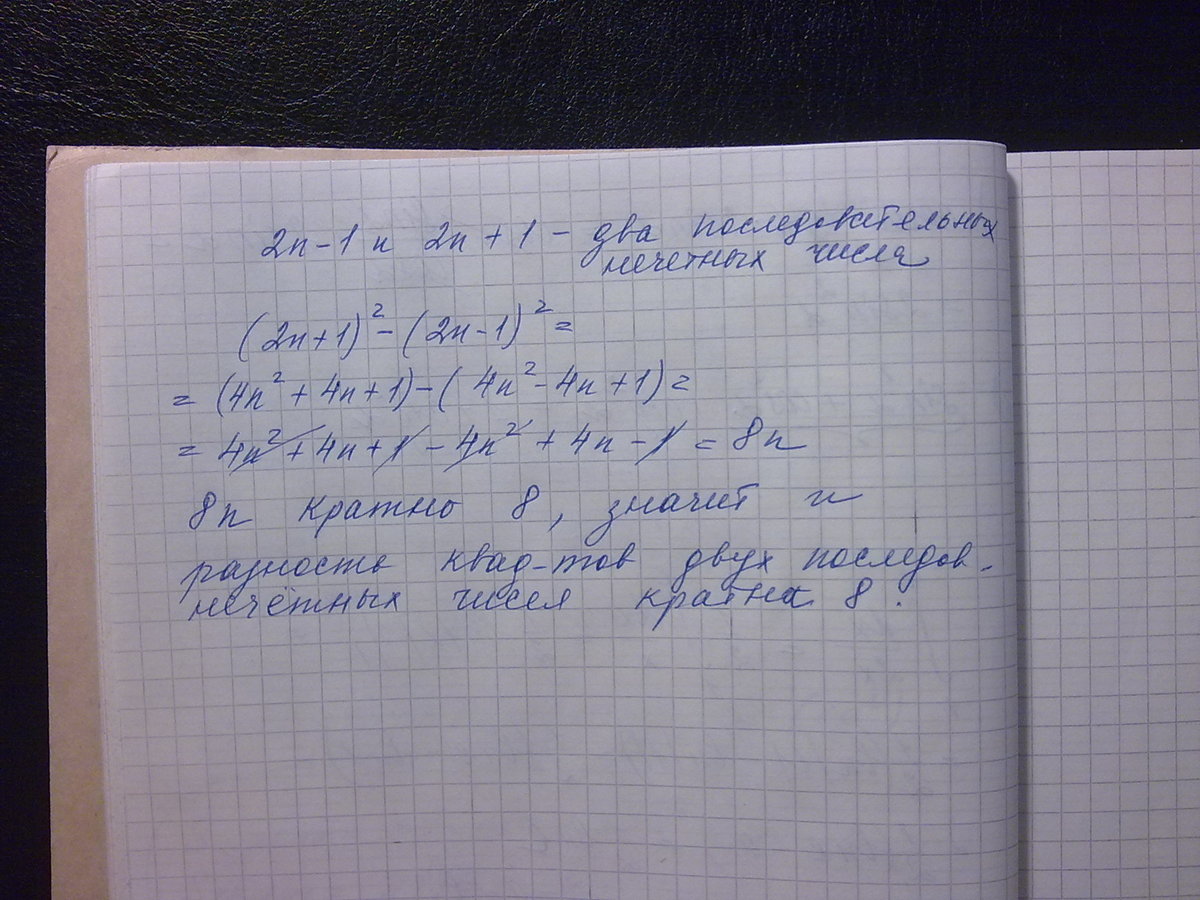 2n-1 и 2n+1 - два последовательных
нечетных числа
(2n+1)² - (2n-1)² =
= (4n² + 4n + 1) - (4n² - 4n + 1) =
= 4n² + 4n + 1 - 4n² + 4n - 1 = 8n
8n кратно 8, значит и
разность квад-тов двух последов.
нечётных чисел кратна 8.